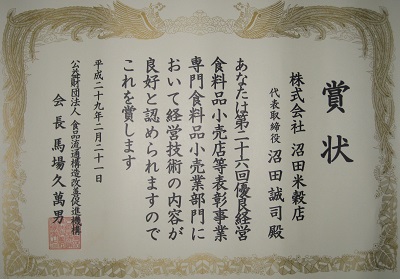 賞状
株式会社 沼田米穀店
代表取締役 沼田誠司 殿
あなたは第二十六回優良経営
食料品小売店等表彰事業
専門食料品小売業部門に
おいて経営技術の内容が
良好と認められますので
これを賞します
平成二十九年二月二十一日
公益財団法人 食品流通構造改善促進機構
会長 馬場久萬男